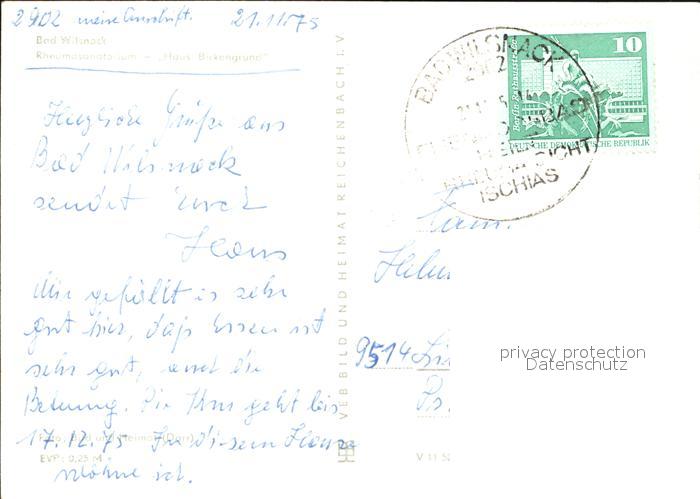 2902 meine Anschrift. 21.11.75
Bad Wilsnack
Rheumasanatorium - „Haus Birkengrund"
Herzliche Grüße aus
Bad Wilsnack
sendet Euch
Hans
Mir gefällt es sehr
gut hier, das Essen ist
sehr gut, und die
Betreuung. Die Kur geht bis
17.12.75 In diesem Hause
wohne ich.
Foto: Bild und Heimat (Darr)
EVP: 0,25 M
VEB BILD UND HEIMAT REICHENBACH I. V.
V 11 50
BAD WILSNACK
2902
MOORBAD
GICHT
ISCHIAS
10
Berlin, Rathausstraße
DEUTSCHE DEMOKRATISCHE REPUBLIK
Fam.
9514
privacy protection
Datenschutz